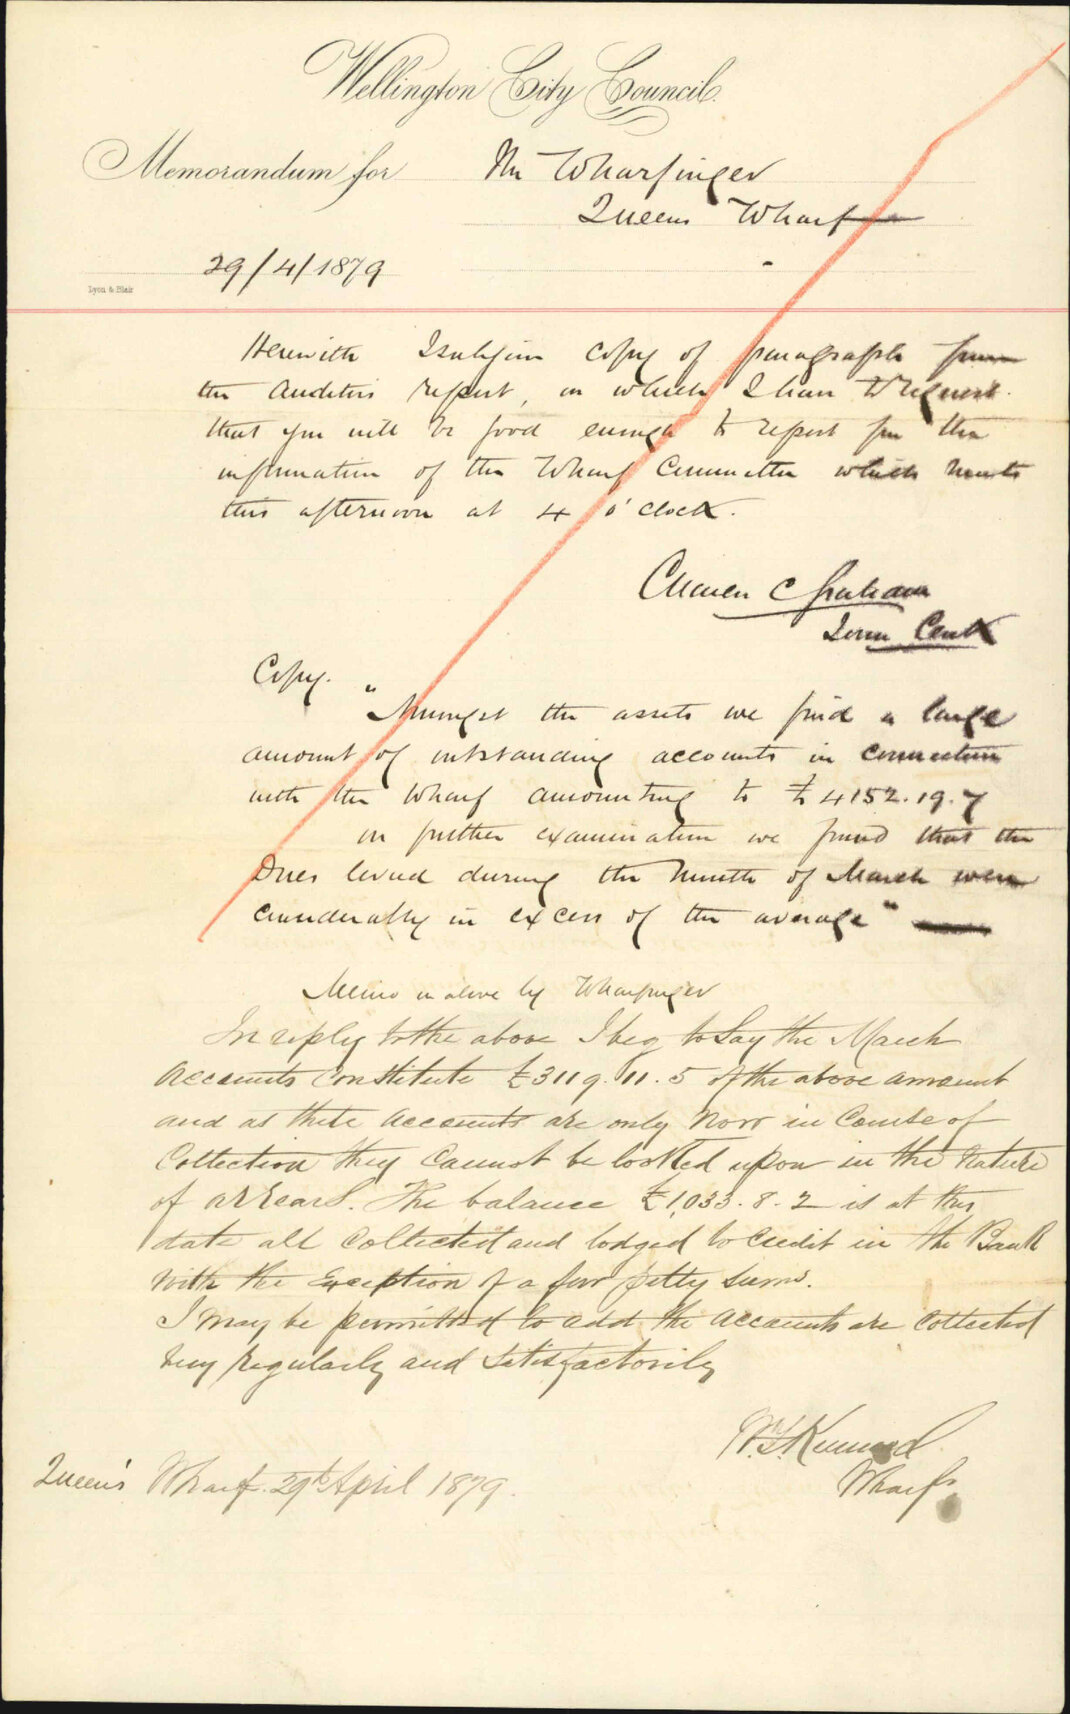 Wellington City Council.
Memorandum for The Wharfinger
Queens Wharf
29/4/1879
Lyon & Blair
Herewith I subjoin copy of paragraph from
the Auditors report, on which I have to request
that you will be good enough to report for the
information of the Wharf Committee which meets
this afternoon at 4 o'clock.
Charles C Graham
Town Clerk
Copy.
"Amongst the assets we find a large
amount of outstanding accounts in connection
with the Wharf amounting to £4152.19.7
on further examination we found that the
Dues levied during the month of March were
considerably in excess of the average"
Memo on above by Wharfinger
In reply to the above I beg to say the March
Accounts Constitute £3119.11.5 of the above amount
and as these accounts are only now in Course of
Collection they Cannot be looked upon in the Nature
of arrears. The balance £1,033.8.2 is at this
date all Collected and lodged to Credit in the Bank
with the Exception of a few petty sums.
I may be permitted to add the accounts are Collected
very regularly and Satisfactorily
Wharfr.
Queen's Wharf. 29th April 1879.